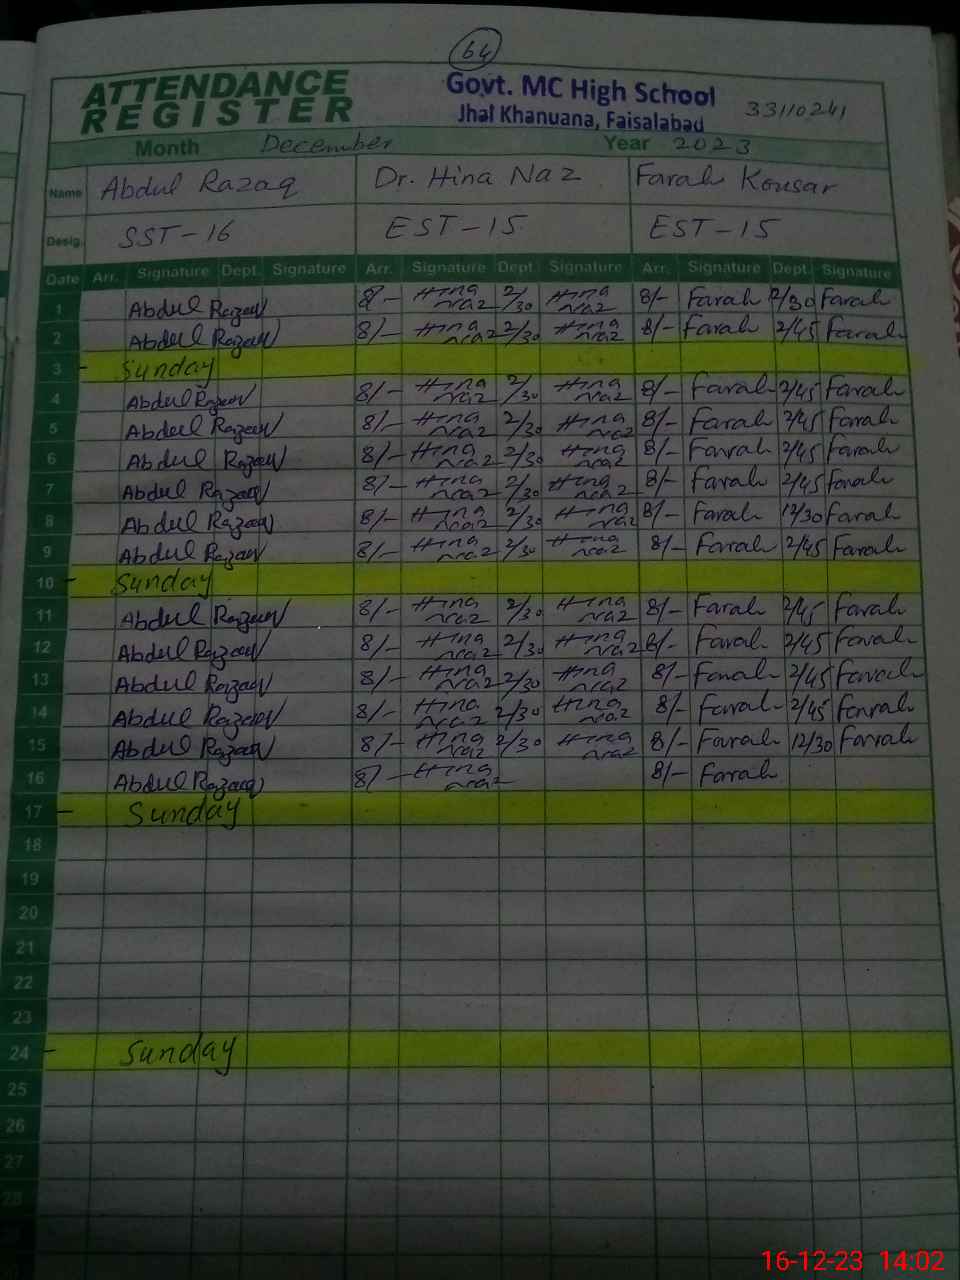 64
ATTENDANCE REGISTER
Govt. MC High School
Jhal Khanuana, Faisalabad
33110241
Month December Year 2023
Name Abdul Razaq Dr. Hina Naz Farah Kousar
Desig. SST-16 EST-15 EST-15
Date Arr. Signature Dept. Signature Arr. Signature Dept. Signature Arr. Signature Dept. Signature
1 Abdul Razaq 8/- Hina Naz 2/30 Hina Naz 8/- Farah 12/30 Farah
2 Abdul Razaq 8/- Hina Naz 2/30 Hina Naz 8/- Farah 2/45 Farah
3 - Sunday
4 Abdul Razaq 8/- Hina Naz 2/30 Hina Naz 8/- Farah 2/45 Farah
5 Abdul Razaq 8/- Hina Naz 2/30 Hina Naz 8/- Farah 2/45 Farah
6 Abdul Razaq 8/- Hina Naz 2/30 Hina Naz 8/- Farah 2/45 Farah
7 Abdul Razaq 8/- Hina Naz 2/30 Hina Naz 8/- Farah 2/45 Farah
8 Abdul Razaq 8/- Hina Naz 2/30 Hina Naz 8/- Farah 12/30 Farah
9 Abdul Razaq 8/- Hina Naz 2/30 Hina Naz 8/- Farah 2/45 Farah
10 - Sunday
11 Abdul Razaq 8/- Hina Naz 2/30 Hina Naz 8/- Farah 2/45 Farah
12 Abdul Razaq 8/- Hina Naz 2/30 Hina Naz 8/- Farah 2/45 Farah
13 Abdul Razaq 8/- Hina Naz 2/30 Hina Naz 8/- Farah 2/45 Farah
14 Abdul Razaq 8/- Hina Naz 2/30 Hina Naz 8/- Farah 2/45 Farah
15 Abdul Razaq 8/- Hina Naz 2/30 Hina Naz 8/- Farah 12/30 Farah
16 Abdul Razaq 8/- Hina Naz 8/- Farah
17 - Sunday
18
19
20
21
22
23
24 - Sunday
25
26
27
28
16-12-23 14:02